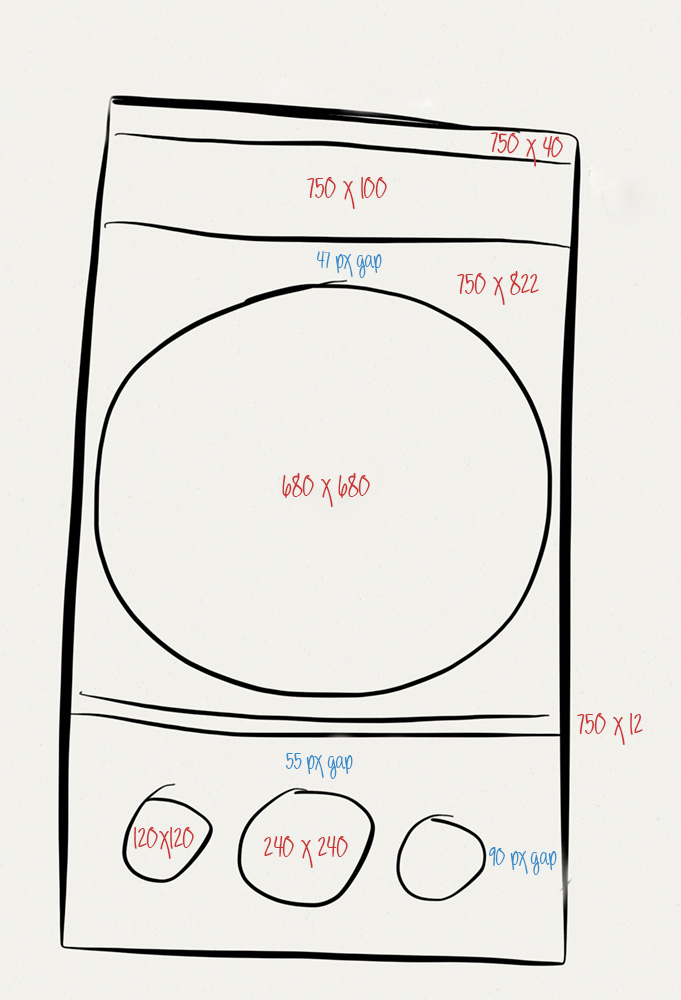 750 x 40
750 x 100
47 px gap
750 x 822
680 x 680
750 x 12
55 px gap
120x120
240 x 240
90 px gap